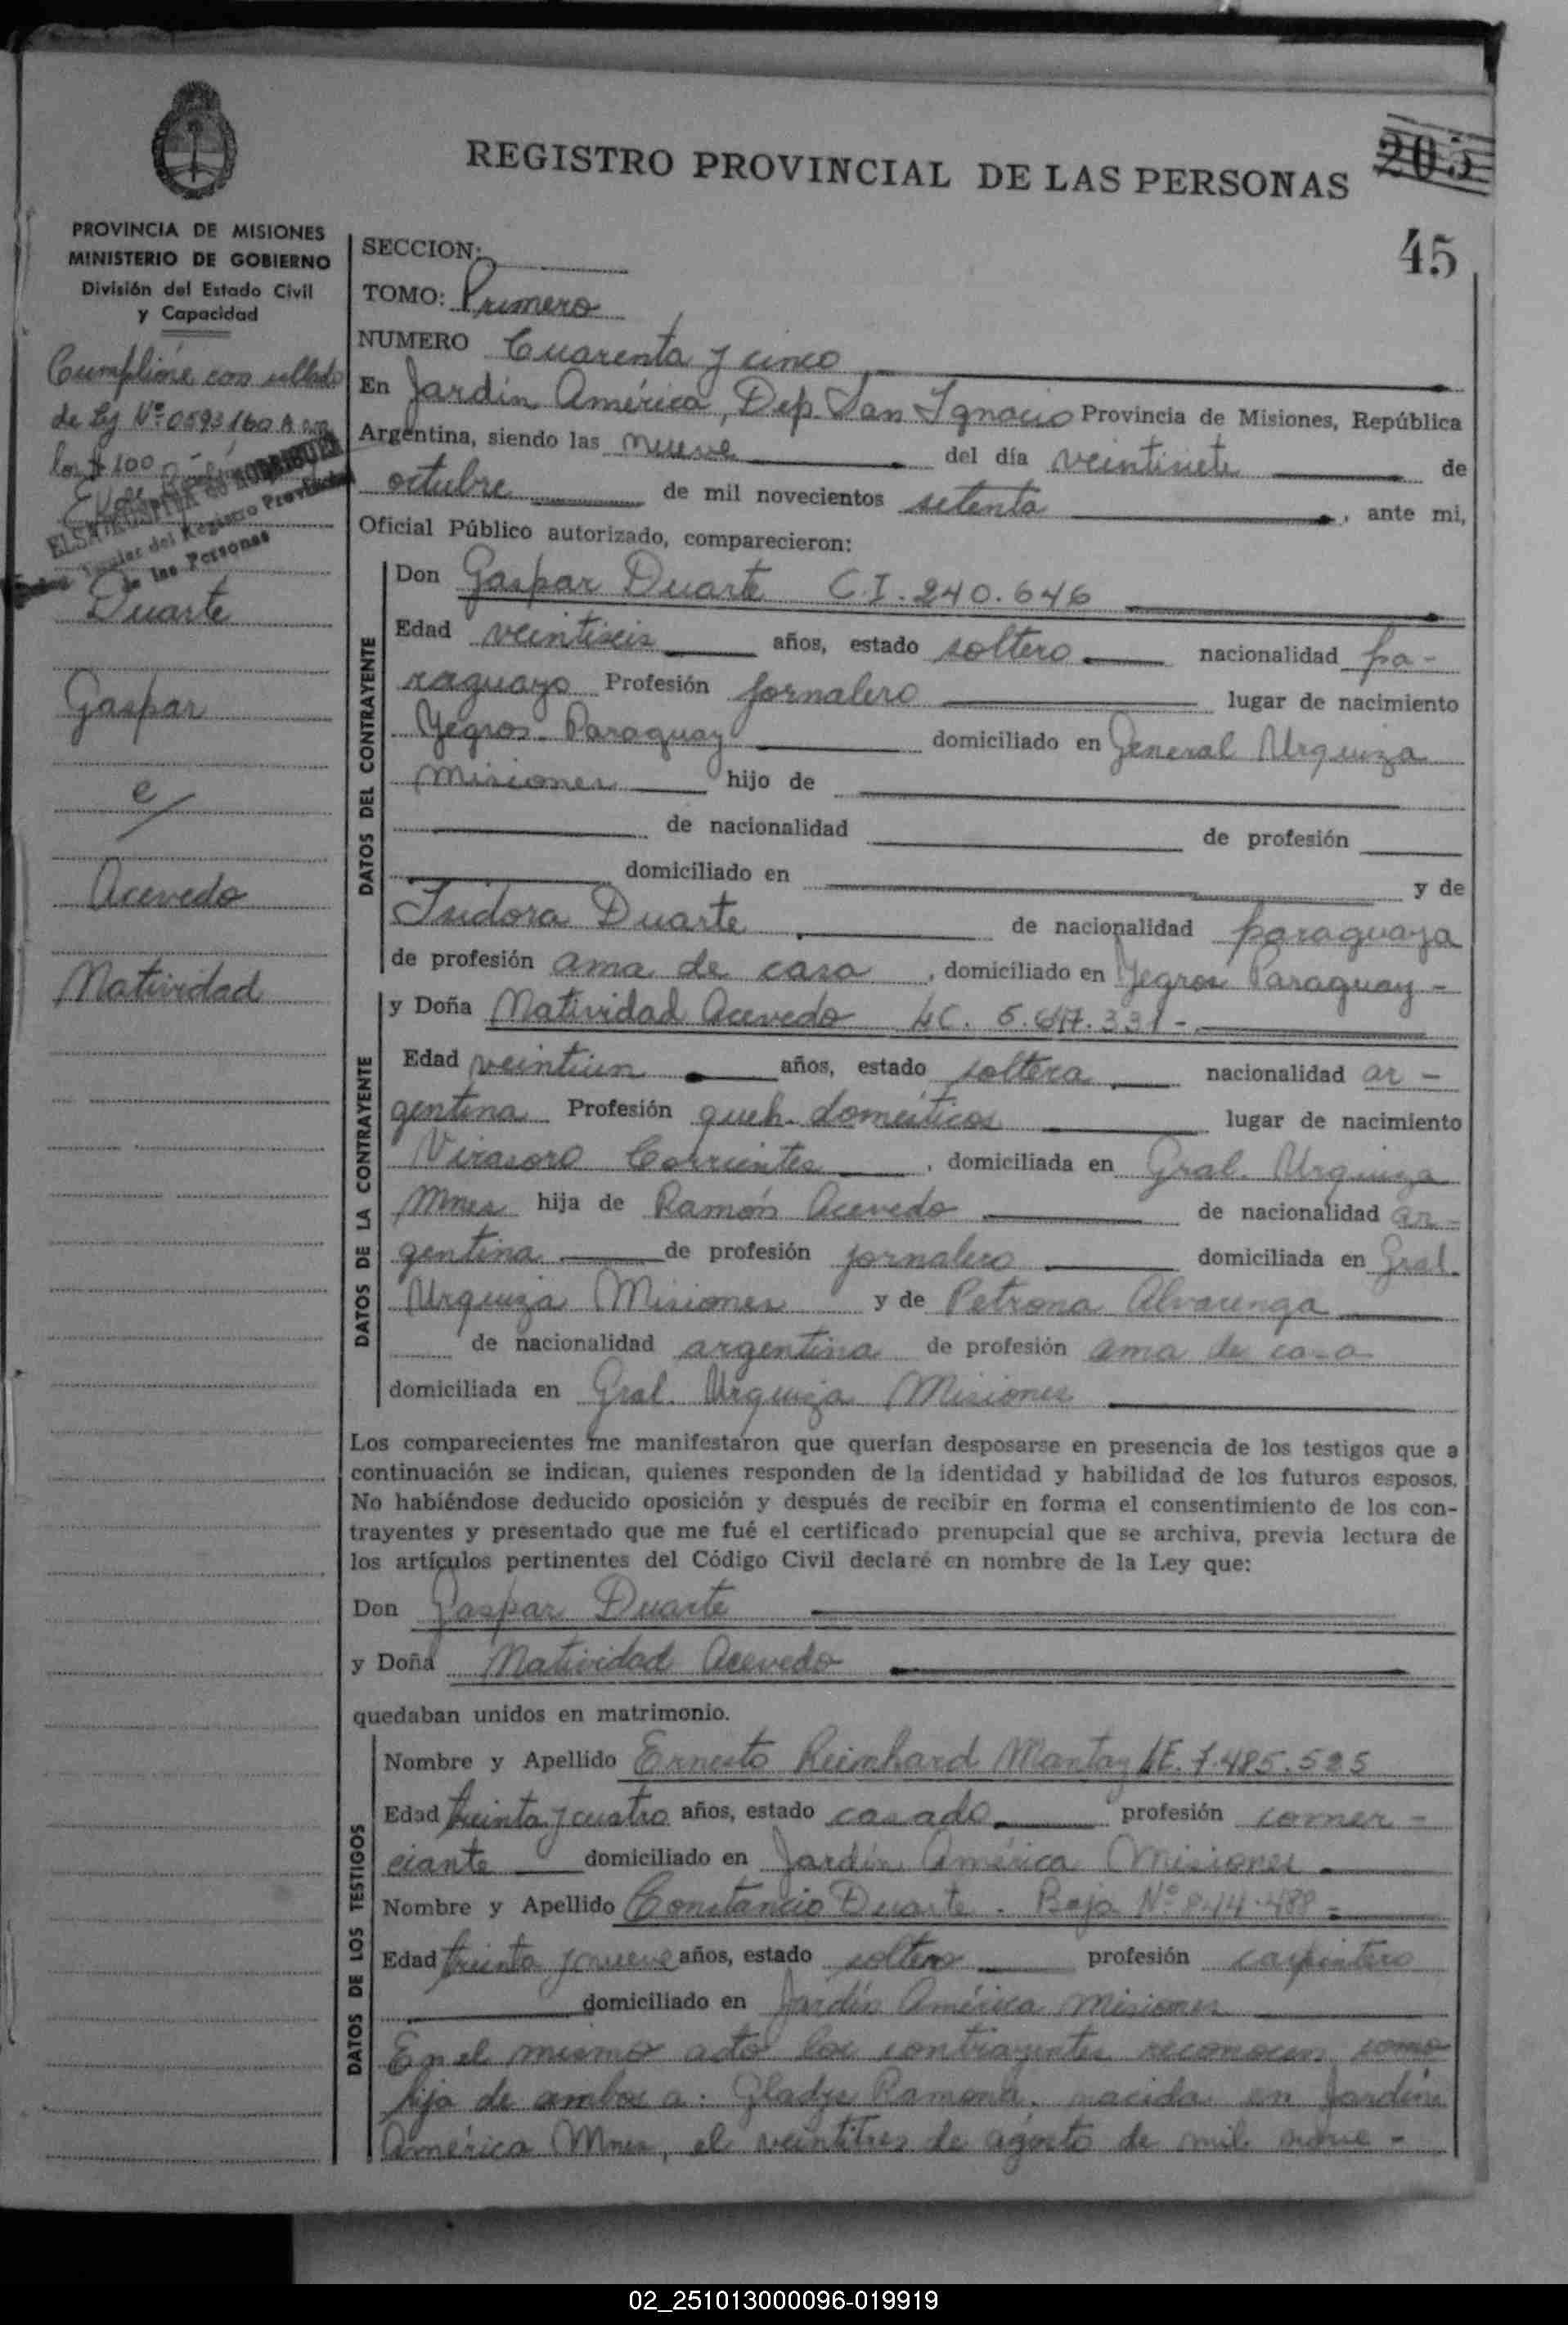 REGISTRO PROVINCIAL DE LAS PERSONAS
205
45
PROVINCIA DE MISIONES
MINISTERIO DE GOBIERNO
División del Estado Civil
y Capacidad
Cumplióse con sellado
de Ley Nº 0593160 A
los $ 100
del Registro Provincial
de las Personas
Duarte
Gaspar
e/
Acevedo
Natividad
SECCION:
TOMO: Primero
NUMERO Cuarenta y cinco
En Jardín América, Dep. San Ignacio Provincia de Misiones, República
Argentina, siendo las nueve del día veintisiete de
octubre de mil novecientos setenta, ante mi,
Oficial Público autorizado, comparecieron:
DATOS DEL CONTRAYENTE
Don Gaspar Duarte C.I. 240.646
Edad veintiseis años, estado soltero nacionalidad pa-
raguayo Profesión jornalero lugar de nacimiento
Yegros - Paraguay domiciliado en General Urquiza
Misiones hijo de
de nacionalidad de profesión
domiciliado en y de
Isidora Duarte de nacionalidad paraguaya
de profesión ama de casa, domiciliado en Yegros Paraguay -
DATOS DE LA CONTRAYENTE
y Doña Natividad Acevedo LC. 5.647.331 -
Edad veintiun años, estado soltera nacionalidad ar -
gentina Profesión queh. domésticos lugar de nacimiento
Virasoro Corrientes, domiciliada en Gral. Urquiza
Mnes hija de Ramón Acevedo de nacionalidad ar -
gentina de profesión jornalero domiciliada en Gral.
Urquiza Misiones y de Petrona Alvarenga
de nacionalidad argentina de profesión ama de casa
domiciliada en Gral. Urquiza Misiones
Los comparecientes me manifestaron que querían desposarse en presencia de los testigos que a
continuación se indican, quienes responden de la identidad y habilidad de los futuros esposos.
No habiéndose deducido oposición y después de recibir en forma el consentimiento de los con-
trayentes y presentado que me fué el certificado prenupcial que se archiva, previa lectura de
los artículos pertinentes del Código Civil declaré en nombre de la Ley que:
Don Gaspar Duarte
y Doña Natividad Acevedo
quedaban unidos en matrimonio.
DATOS DE LOS TESTIGOS
Nombre y Apellido Ernesto Reinhard Mantay LE. 7.485.525
Edad treinta y cuatro años, estado casado profesión comer -
ciante domiciliado en Jardín América Misiones
Nombre y Apellido Constancio Duarte. Baja Nº 844.488 =
Edad treinta y nueve años, estado soltero profesión carpintero
domiciliado en Jardín América Misiones
En el mismo acto los contrayentes reconocen como
hija de ambos a: Gladys Ramona, nacida en Jardín
América Mnes, el veintitres de agosto de mil nove -
02_251013000096-019919